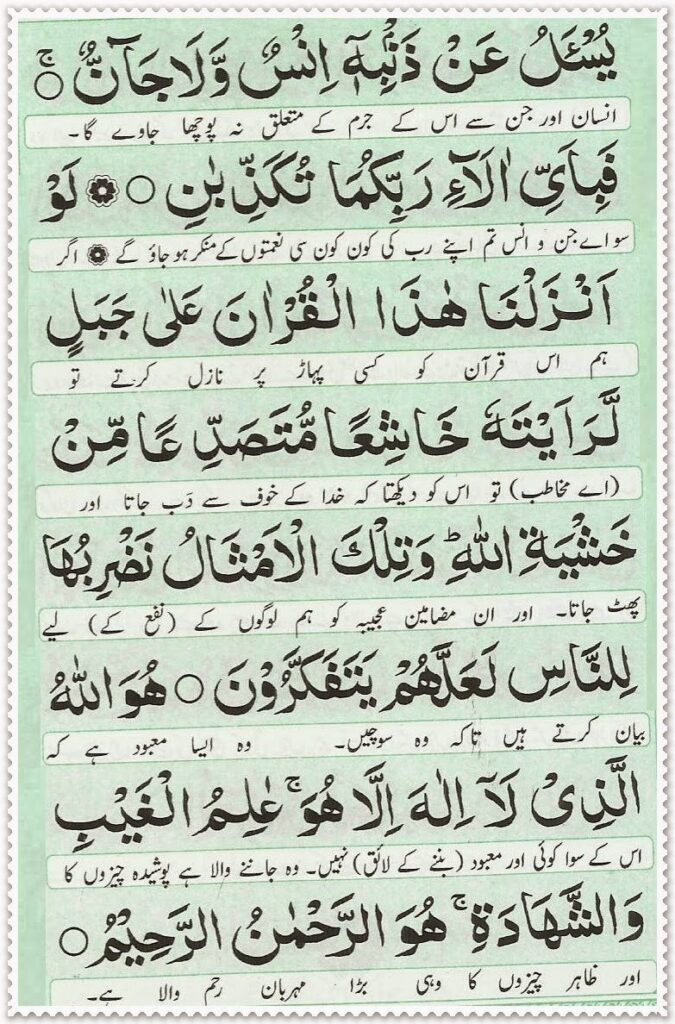 یُسْـَٔلُ عَنْ ذَنْۢبِهٖۤ اِنْسٌ وَّلَا جَآنٌّ ۚ○
انسان اور جن سے اس کے جرم کے متعلق نہ پوچھا جاوے گا۔
فَبِاَیِّ اٰلَآءِ رَبِّكُمَا تُكَذِّبٰنِ ○ ۞ لَوْ
سو اے جن و انس تم اپنے رب کی کون کون سی نعمتوں کے منکر ہو جاؤ گے ۞ اگر
اَنْزَلْنَا هٰذَا الْقُرْاٰنَ عَلٰی جَبَلٍ
ہم اس قرآن کو کسی پہاڑ پر نازل کرتے تو
لَّرَاَیْتَهٗ خَاشِعًا مُّتَصَدِّعًا مِّنْ
(اے مخاطب) تو اس کو دیکھتا کہ خدا کے خوف سے دَب جاتا اور
خَشْیَةِ اللّٰهِ ؕ وَتِلْكَ الْاَمْثَالُ نَضْرِبُهَا
پھٹ جاتا۔ اور ان مضامین عجیبہ کو ہم لوگوں کے (نفع کے) لیے
لِلنَّاسِ لَعَلَّهُمْ یَتَفَكَّرُوْنَ ○ هُوَ اللّٰهُ
بیان کرتے ہیں تاکہ وہ سوچیں۔ وہ ایسا معبود ہے کہ
الَّذِیْ لَاۤ اِلٰهَ اِلَّا هُوَ ۚ عٰلِمُ الْغَیْبِ
اس کے سوا کوئی اور معبود (بننے کے لائق) نہیں۔ وہ جاننے والا ہے پوشیدہ چیزوں کا
وَالشَّهَادَةِ ۚ هُوَ الرَّحْمٰنُ الرَّحِیْمُ ○
اور ظاہر چیزوں کا وہی بڑا مہربان رحم والا ہے۔